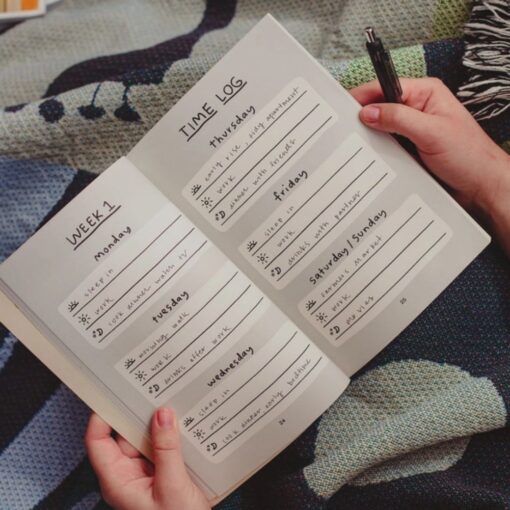 WEEK 1
monday
sleep in
work
cook dinner watch TV
tuesday
morning walk
work
drinks after work
wednesday
sleep in
work
cook dinner early bedtime
24
TIME LOG
thursday
early rise, tidy apartment
work
dinner with friends
friday
sleep in
work
drinks with partner
Saturday/Sunday
farmers market
work
movies
25